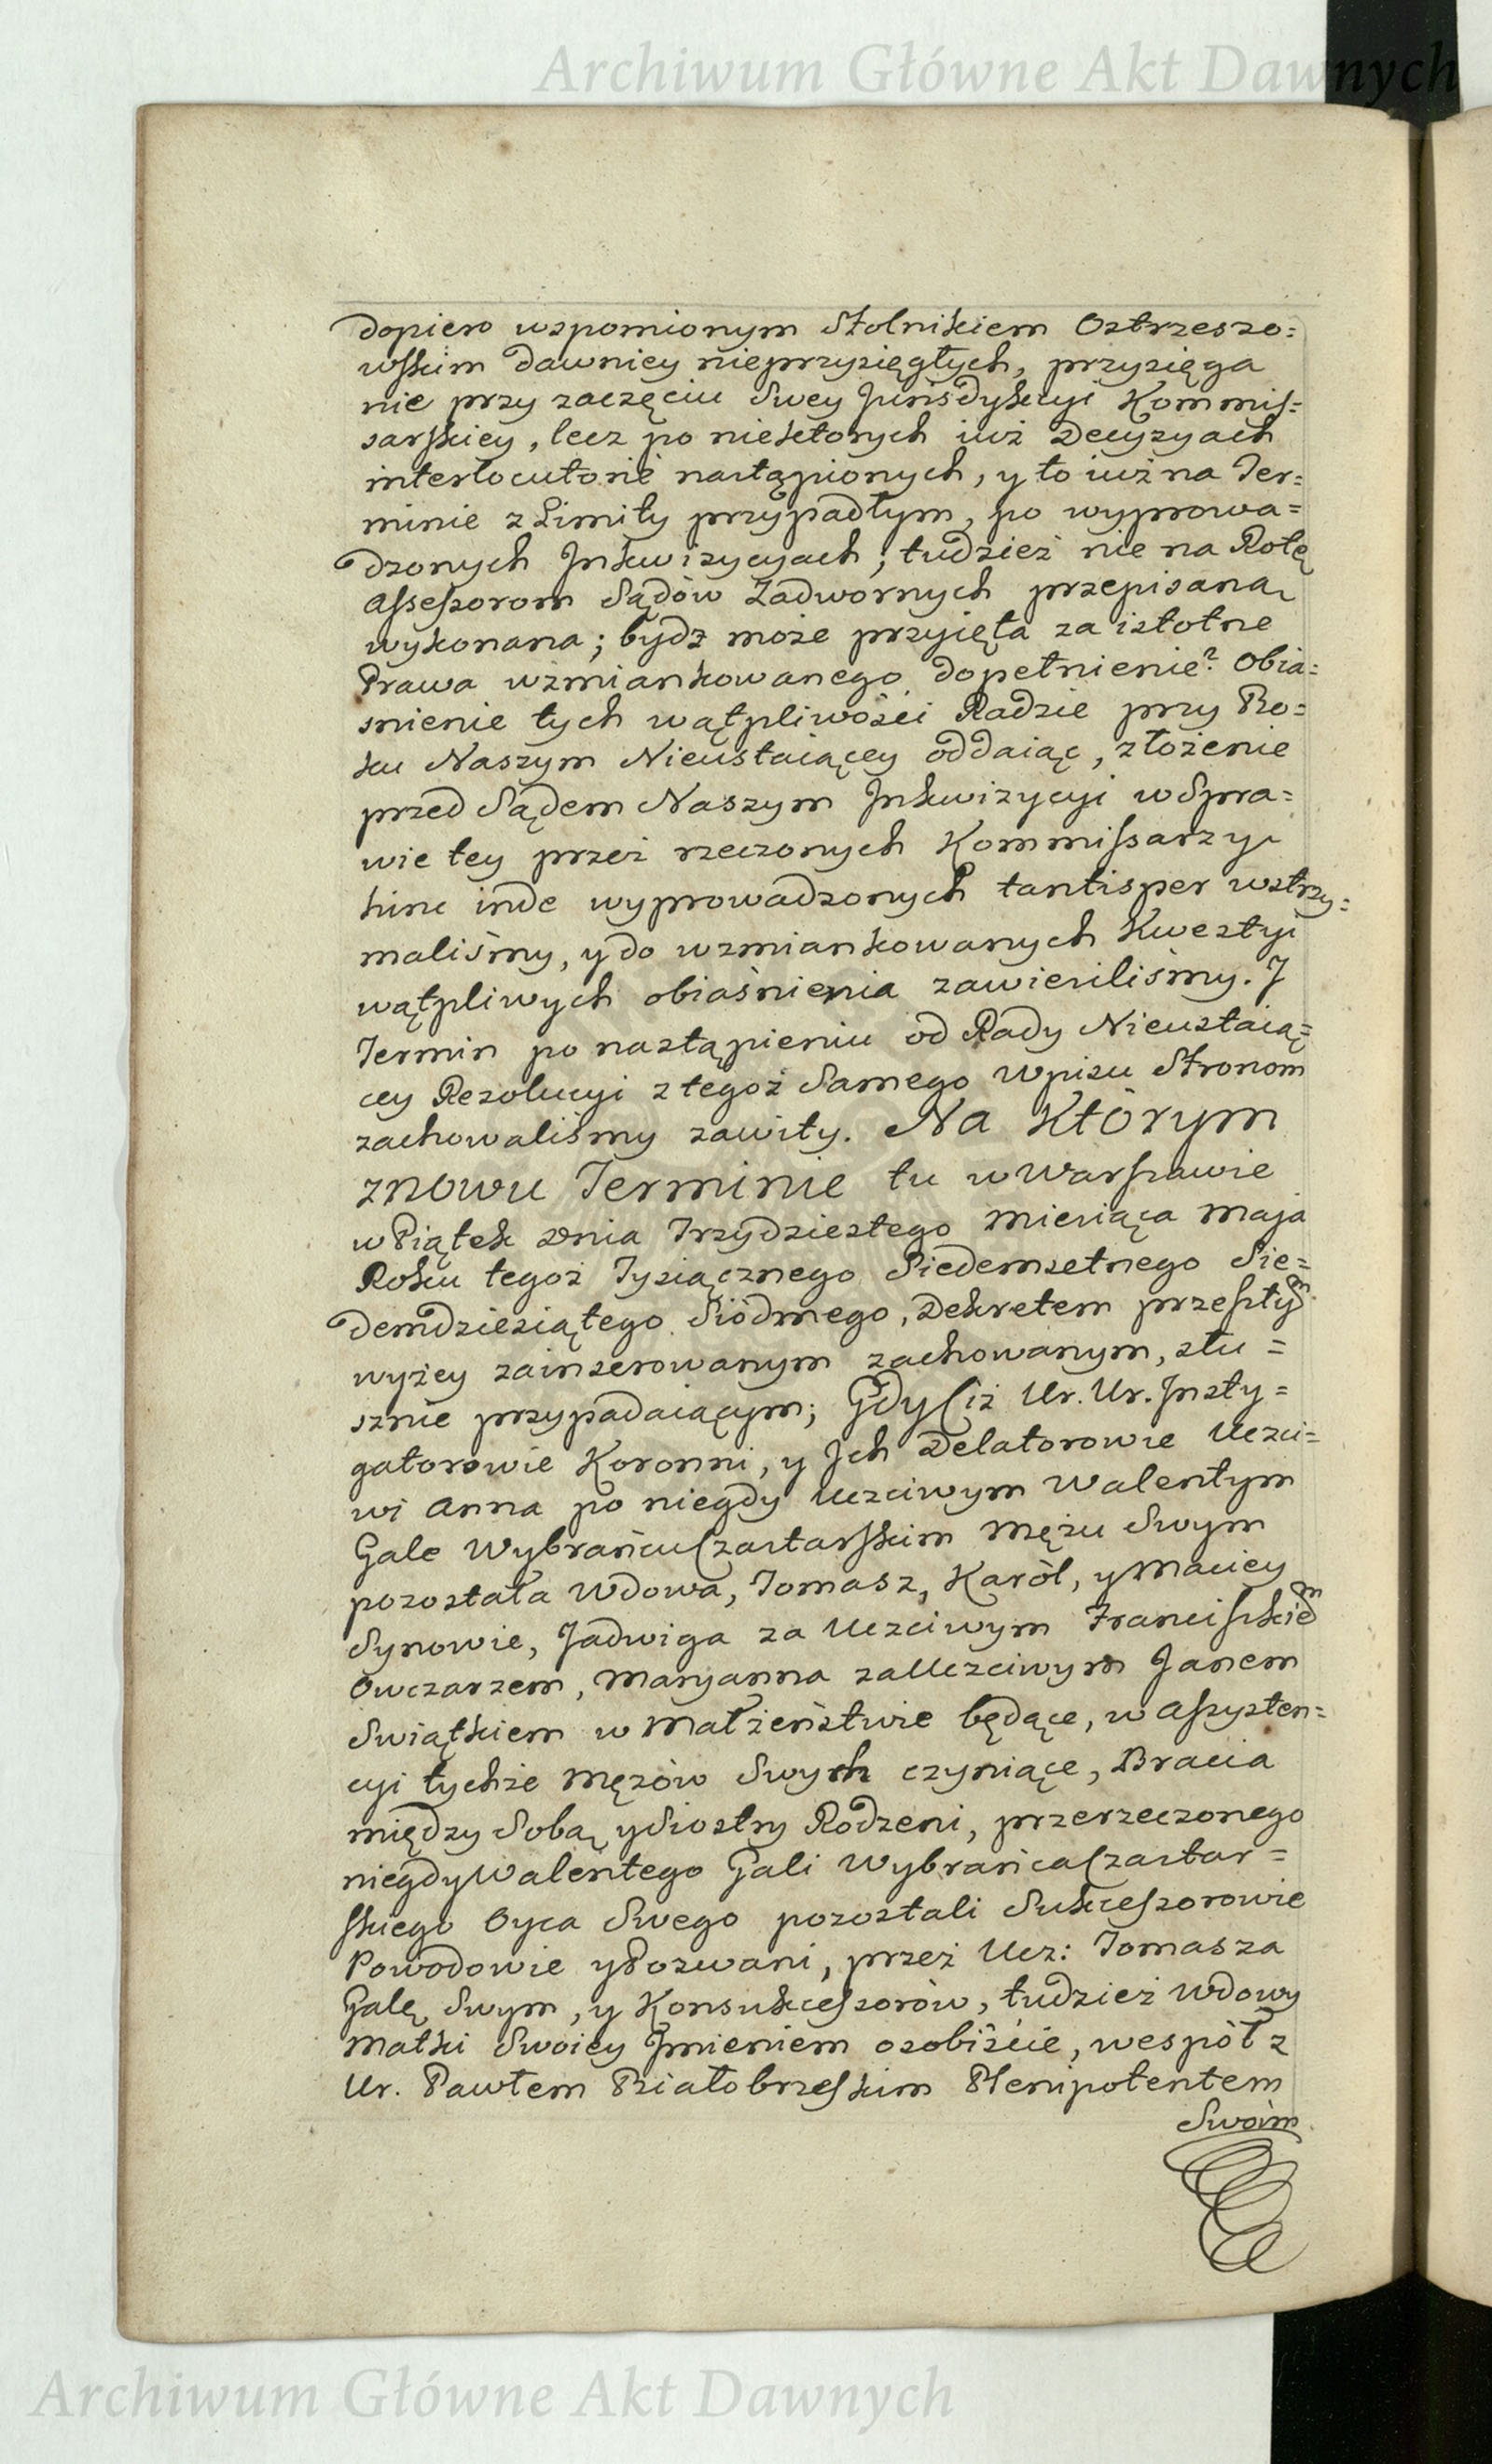 Archiwum Główne Akt Dawnych
dopiero wspomionym Stolnikiem Ostrzeszo=
wskim dawniey nieprzysięgłych, przysięga
nie przy zaczęciu Swey Jurisdykcyi Kommis=
sarskiey, lecz po niektorych iuż Decyzyach
interlocutorie nastąpionych, y to iuż na Ter=
minie z Limity przypadłym, po wyprowa=
dzonych Inkwizycyach; tudzież nie na Rotę
Assessorom Sądów Zadwornych przepisaną
wykonana; bydz może przyięta za istotne
Prawa wzmiankowanego dopełnienie? Obia=
snienie tych wątpliwości Radzie przy Bo=
ku Naszym Nieustaiącey oddaiąc, złożenie
przed Sądem Naszym Inkwizycyi w Spra=
wie tey przez rzeczonych Kommissarzy
hinc inde wyprowadzonych tantisper wstrzy=
maliśmy, y do wzmiankowanych Kwestyi
wątpliwych obiaśnienia zawiesiliśmy. I
Termin po nastąpieniu od Rady Nieustaią=
cey Rezolucyi z tegoż Samego Wpisu Stronom
zachowaliśmy zawity. Na Którym
znowu Terminie tu w Warszawie
w Piątek Dnia Trzydziestego Miesiąca Maja
Roku tegoż Tysiącznego Siedemsetnego Sie=
demdziesiątego Siódmego, Dekretem przeszłym
wyżey zainserowanym zachowanym, słu=
sznie przypadaiącym; Gdy (iż Ur. Ur. Insty=
gatorowie Koronni, y Ich Delatorowie Uczci=
wi Anna po niegdy Uczciwym Walentym
Gale Wybrańcu Czastarskim Mężu Swym
pozostała Wdowa, Tomasz, Karól, y Maciey
Synowie, Jadwiga za Uczciwym Franciszkiem
Owczarzem, Maryanna za Uczciwym Janem
Swiątkiem w Małżeństwie będące, w Assysten=
cyi tychże Mężów Swych czyniące, Bracia
między Sobą y Siostry Rodzeni, przerzeczonego
niegdy Walentego Gali Wybrańca Czastar=
skiego Oyca Swego pozostali Sukcessorowie
Powodowie y Pozwani, przez Ucz: Tomasza
Galę Swym, y Konsukcessorów, tudzież Wdowy
Matki Swoiey Imieniem osobiście, wespół z
Ur. Pawłem Białobrzeskim Plenipotentem
Swoim
Archiwum Główne Akt Dawnych